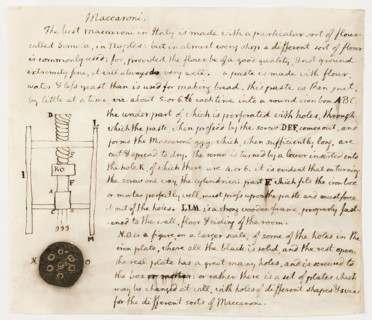 Maccaroni.
The best maccaroni in Italy is made with a particular sort of flour
called Semola, in Naples: but in almost every shop a different sort of flour
is commonly used; for, provided the flour be of a good quality, & not ground
extremely fine, it will always do very well. a paste is made with flour,
water & less yeast than is used for making bread. this paste is then put,
by little at a time, viz. about 5. or 6. ℔ each time into a round iron box ABC.
the under part of which is perforated with holes, through
which the paste, when pressed by the screw DEF, comes out, and
forms the Maccaroni ggg which, when sufficiently long, are
cut & spread to dry. the screw is turned by a lever inserted into
the hole K, of which there are 4. or 6. it is evident that on turning
the screw one way, the cylindrical part F. which fits the iron box
or mortar perfectly well, must press upon the paste and must force
it out of the holes. LLM. is a strong wooden frame, properly fast-
ened to the wall, floor & cieling of the room.
N.O. is a figure, on a larger scale, of some of the holes in the
iron plate, where all the black is solid, and the rest open,
the real plate has a great many holes, and is screwed to
the box or mortar: or rather there is a set of plates which
may be changed at will, with holes of different shapes & sizes
for the different sorts of Maccaroni.
D
L
I
KO
E
F
A
C
ggg
L
M
N
O